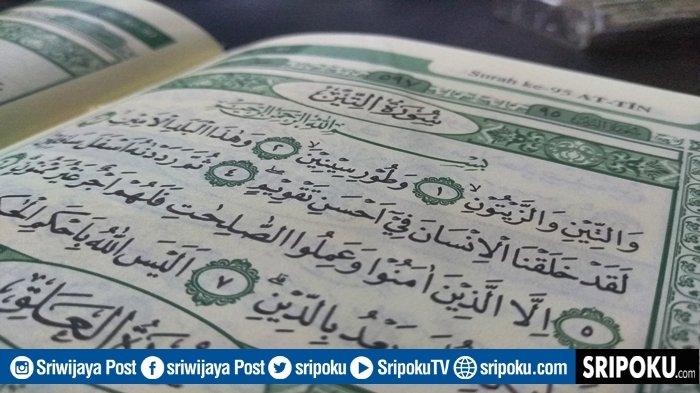 Surah ke-95 AT-TÎN
٥٩٧
٩٥
سُوْرَةُ التِّيْنِ
بِسْمِ اللّٰهِ الرَّحْمٰنِ الرَّحِيْمِ
وَالتِّيْنِ وَالزَّيْتُوْنِۙ ١ وَطُوْرِ سِيْنِيْنَۙ ٢ وَهٰذَا الْبَلَدِ الْاَمِيْنِ
لَقَدْ خَلَقْنَا الْاِنْسَانَ فِيْٓ اَحْسَنِ تَقْوِيْمٍۖ ٤ ثُمَّ رَدَدْنٰهُ اَسْفَلَ
٥ اِلَّا الَّذِيْنَ اٰمَنُوْا وَعَمِلُوا الصّٰلِحٰتِ فَلَهُمْ اَجْرٌ غَيْرُ
بَعْدُ بِالدِّيْنِۗ ٧ اَلَيْسَ اللّٰهُ بِاَحْكَمِ
سُوْرَةُ الْعَلَقِ
Sriwijaya Post sriwijaya Post sripoku SripokuTV sripoku.com SRIPOKU.com